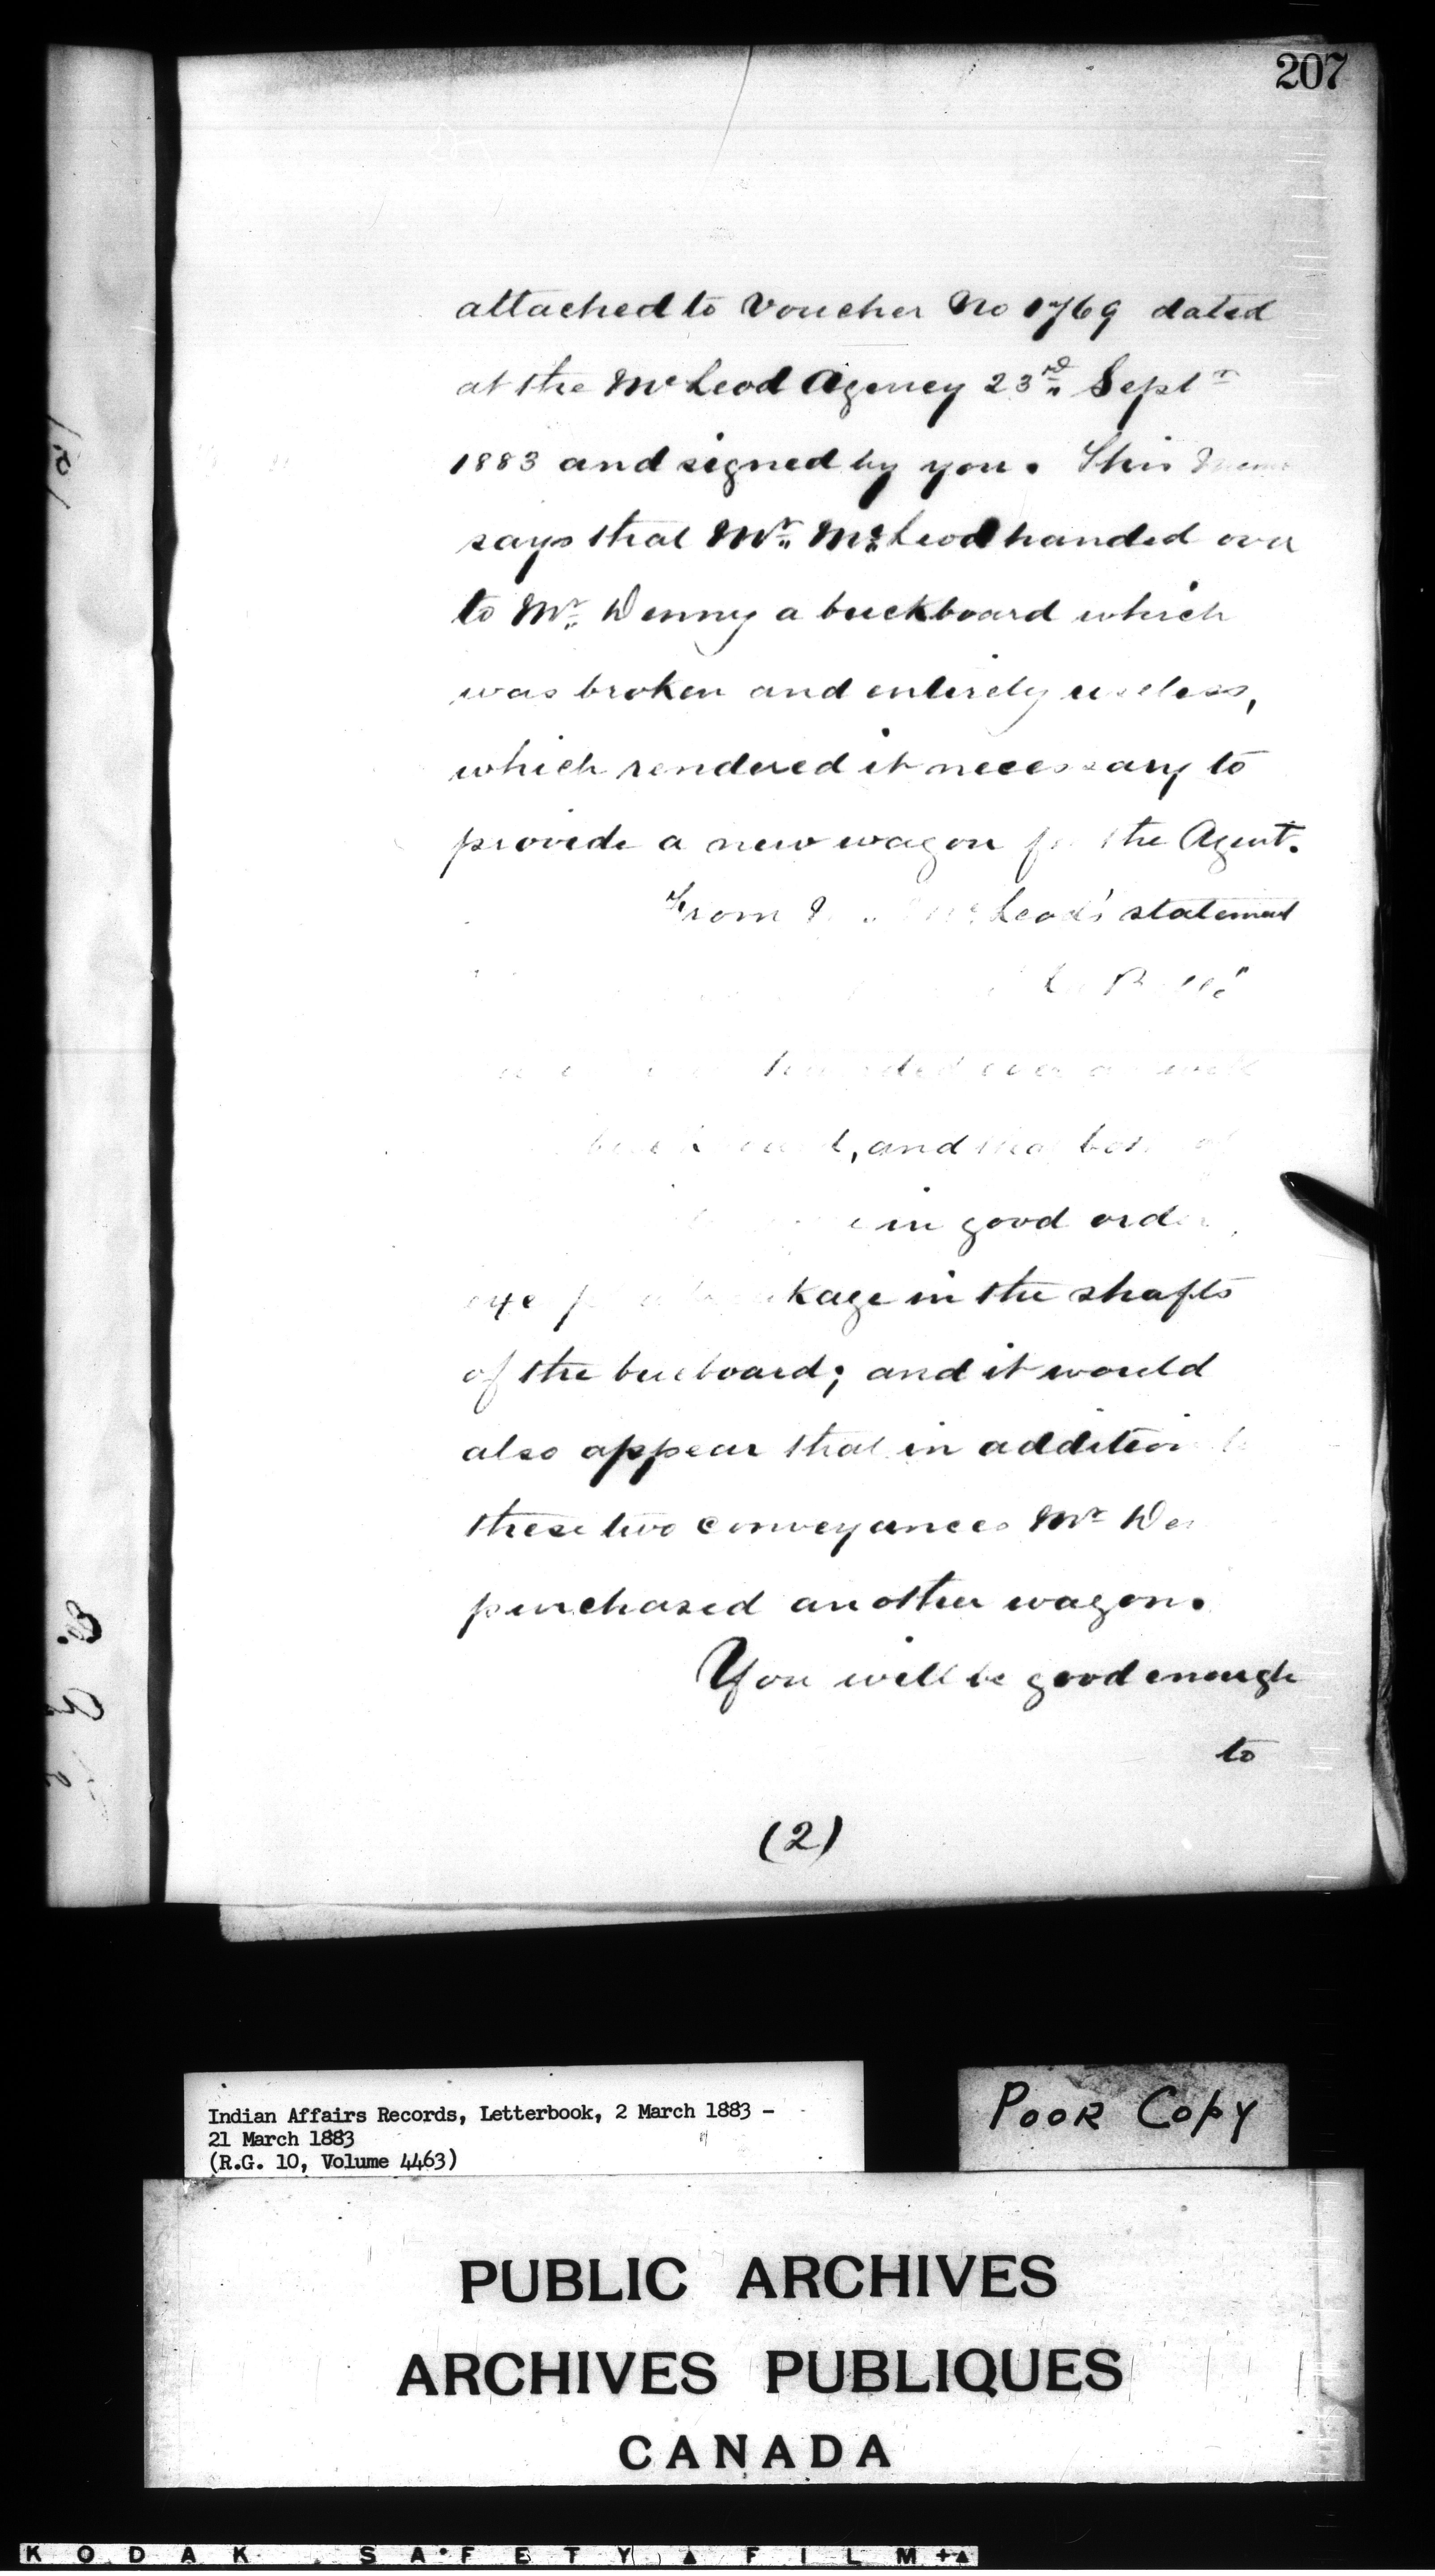 207
attached to Voucher No 1769 dated
at the McLeod Agency 23rd Septr
1883 and signed by you. This Memo
says that Mr. McLeod handed over
to Mr. Denny a buckboard which
was broken and entirely useless,
which rendered it necessary to
provide a new wagon for the Agent.
From McLeod's statement
handed over a
, and
in good order,
except a breakage in the shafts
of the bucboard; and it would
also appear that in addition to
these two conveyances Mr. Den
purchased another wagon.
You will be good enough
to
(2)
Indian Affairs Records, Letterbook, 2 March 1883 -
21 March 1883
(R.G. 10, Volume 4463)
POOR COPY
PUBLIC ARCHIVES
ARCHIVES PUBLIQUES
CANADA
KODAK SAFETY FILM